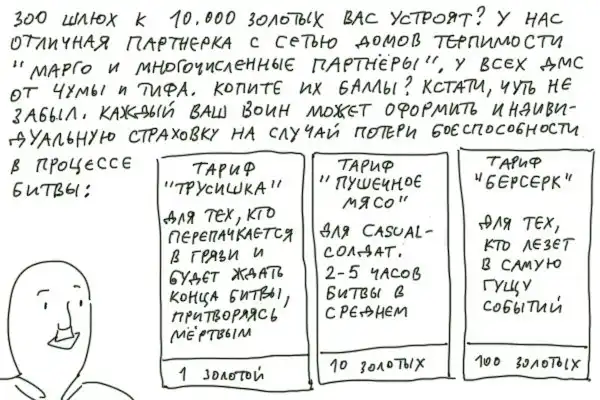 300 ШЛЮХ К 10.000 ЗОЛОТЫХ ВАС УСТРОЯТ? У НАС
ОТЛИЧНАЯ ПАРТНЕРКА С СЕТЬЮ ДОМОВ ТЕРПИМОСТИ
"МАРГО И МНОГОЧИСЛЕННЫЕ ПАРТНЁРЫ", У ВСЕХ ДМС
ОТ ЧУМЫ И ТИФА. КОПИТЕ ИХ БАЛЛЫ? КСТАТИ, ЧУТЬ НЕ
ЗАБЫЛ. КАЖДЫЙ ВАШ ВОИН МОЖЕТ ОФОРМИТЬ ИНДИВИ-
ДУАЛЬНУЮ СТРАХОВКУ НА СЛУЧАЙ ПОТЕРИ БОЕСПОСОБНОСТИ
В ПРОЦЕССЕ
БИТВЫ:
ТАРИФ
"ТРУСИШКА"
ДЛЯ ТЕХ, КТО
ПЕРЕПАЧКАЕТСЯ
В ГРЯЗИ И
БУДЕТ ЖДАТЬ
КОНЦА БИТВЫ,
ПРИТВОРЯСЬ
МЁРТВЫМ
1 ЗОЛОТОЙ
ТАРИФ
"ПУШЕЧНОЕ
МЯСО"
ДЛЯ CASUAL-
СОЛДАТ.
2-5 ЧАСОВ
БИТВЫ В
СРЕДНЕМ
10 ЗОЛОТЫХ
ТАРИФ
"БЕРСЕРК"
ДЛЯ ТЕХ,
КТО ЛЕЗЕТ
В САМУЮ
ГУЩУ
СОБЫТИЙ
100 ЗОЛОТЫХ